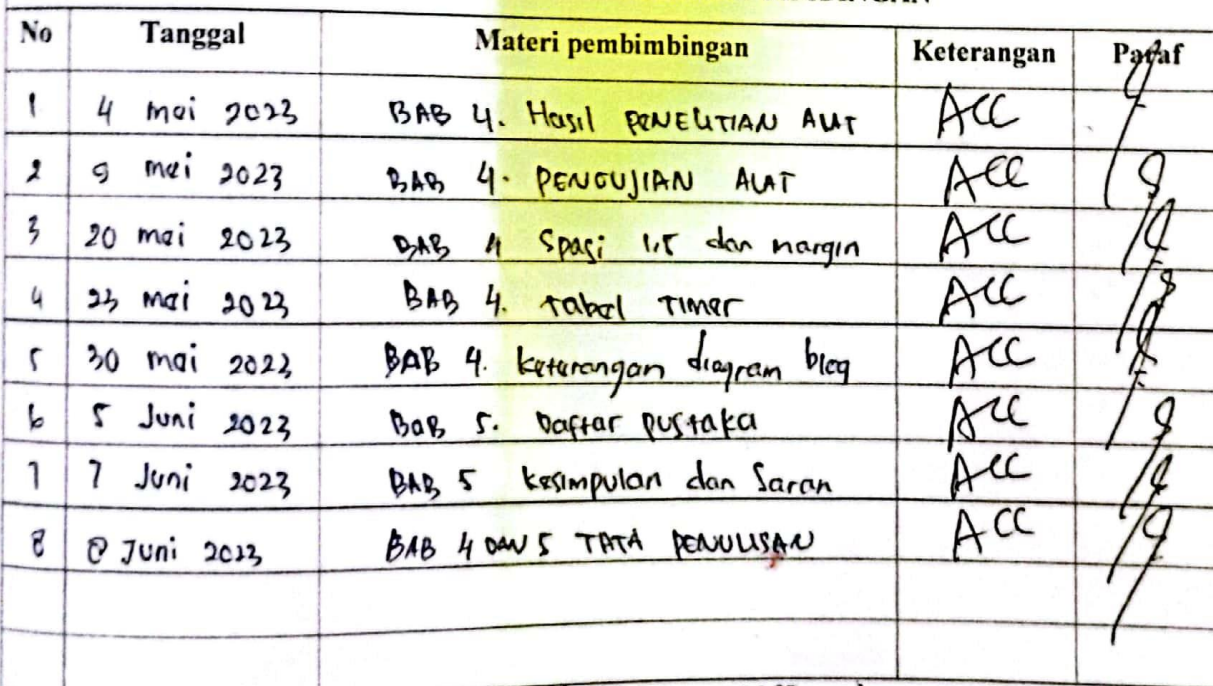 No Tanggal Materi pembimbingan Keterangan Paraf
1 4 mei 2023 BAB 4. Hasil PENELITIAN ALAT ACC
2 9 mei 2023 BAB 4. PENGUJIAN ALAT ACC
3 20 mei 2023 BAB 4 Spasi 1,5 dan margin ACC
4 23 mei 2023 BAB 4. Tabel Timer ACC
5 30 mei 2023 BAB 4. keterangan diagram blog ACC
6 5 Juni 2023 BAB 5. Daftar pustaka ACC
7 7 Juni 2023 BAB 5 kesimpulan dan Saran ACC
8 8 Juni 2023 BAB 4 DAN 5 TATA PENULISAN ACC